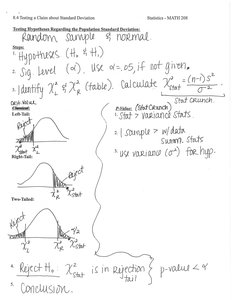 8.4 Testing a Claim about Standard Deviation
Statistics – MATH 208
Testing Hypotheses Regarding the Population Standard Deviation:
Random sample & normal
Steps:
1. Hypotheses (H₀ & H₁)
2. Sig Level (α). Use α=.05, if not given.
3. Identify χ²L & χ²R (table). Calculate χ²stat = (n-1)s²/σ²
Crit. Values
Classical:
Left-Tail:
Reject
Right-Tail:
Reject
Two-Tailed:
Reject
Reject
P-Value: (Stat Crunch)
Stat Crunch
1. Stat > Variance Stats
2. 1 sample > w/data
Summ. Stats
3. use variance (σ²) for hyp.
4. Reject H₀ χ²stat is in rejection tail
p-value < α
5. Conclusion.